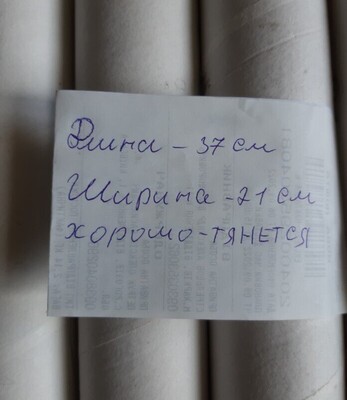 Длина - 37 см
Ширина - 21 см
хорошо - тянется